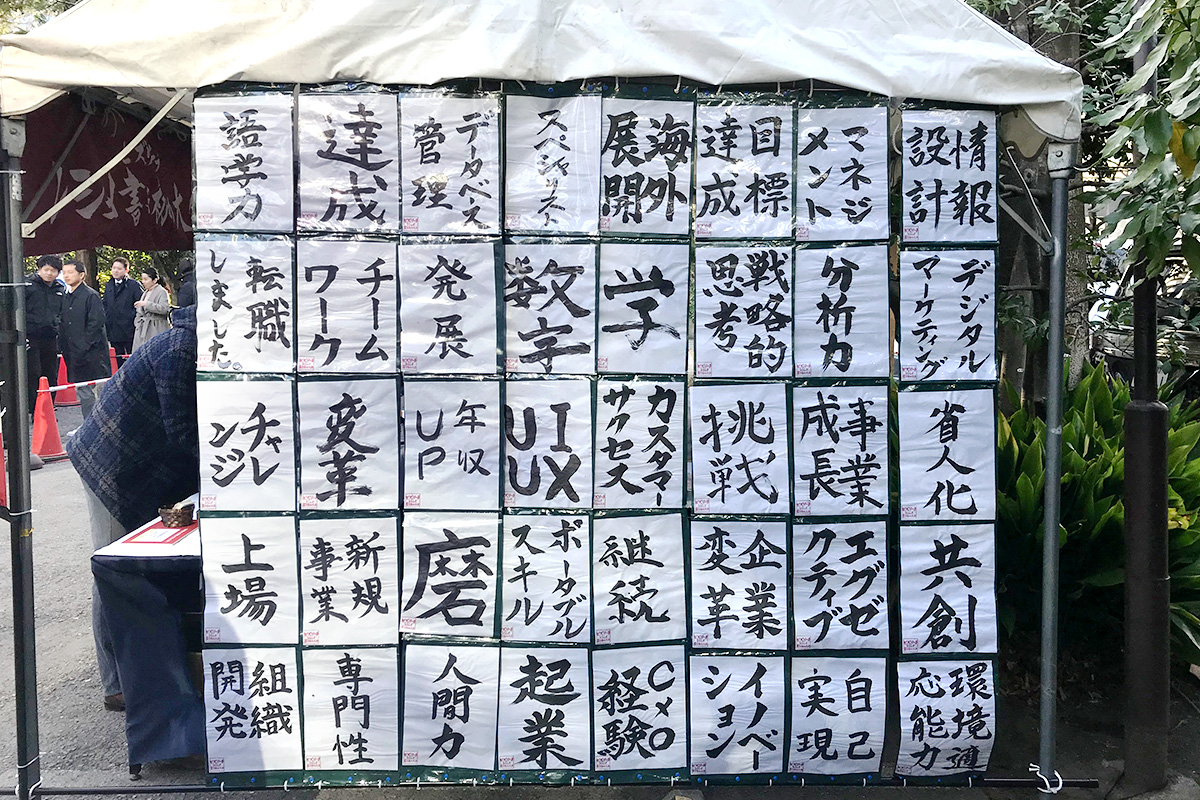 語学力
達成
データベース
管理
スペシャリスト
海外
展開
目標
達成
マネジ
メント
情報
設計
転職
しました。
チーム
ワーク
発展
数字
学
戦略的
思考
分析力
デジタル
マーケティング
チャレ
ンジ
変革
年収
UP
UI
UX
カスタマー
サクセス
挑戦
事業
成長
省人化
上場
新規
事業
磨
ポータブル
スキル
継続
企業
変革
エグゼ
クティブ
共創
組織
開発
専門性
人間力
起業
CxO
経験
イノベー
ション
自己
実現
環境適
応能力